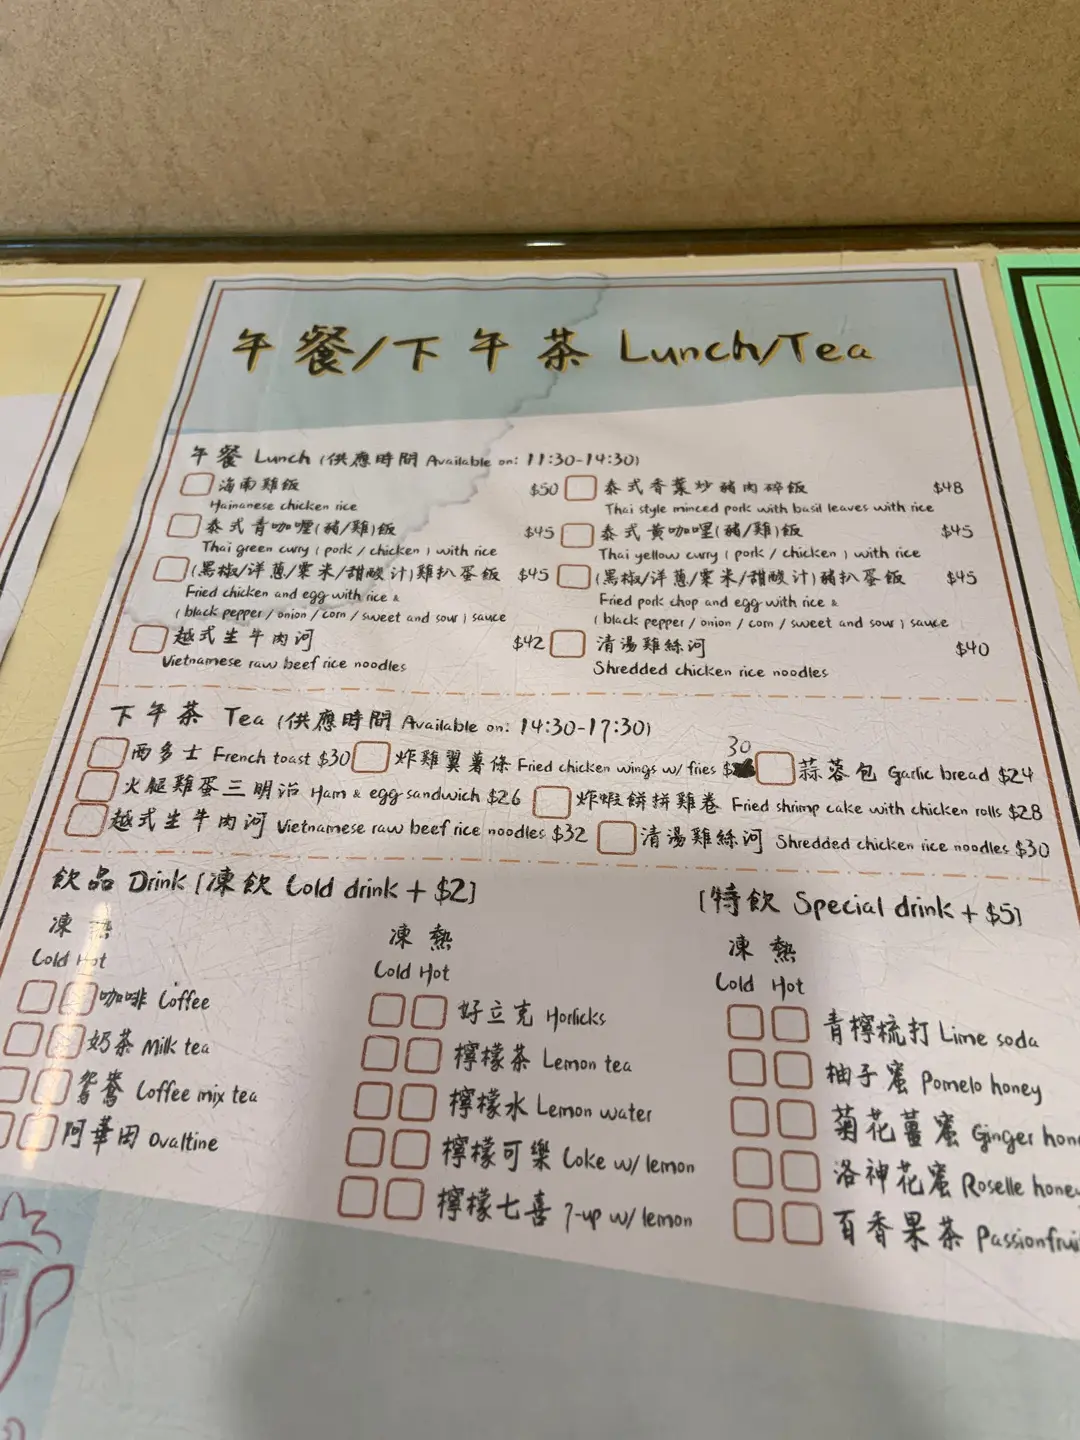 午餐/下午茶 Lunch/Tea
午餐 Lunch (供應時間 Available on: 11:30-14:30)
海南雞飯 $50
Hainanese chicken rice
泰式香葉炒豬肉碎飯 $48
Thai style minced pork with basil leaves with rice
泰式青咖喱(豬/雞)飯 $45
Thai green curry (pork / chicken) with rice
泰式黄咖喱(豬/雞)飯 $45
Thai yellow curry (pork / chicken) with rice
(黑椒/洋蔥/粟米/甜酸汁)雞扒蛋飯 $45
Fried chicken and egg with rice &
(black pepper / onion / corn / sweet and sour) sauce
(黑椒/洋蔥/粟米/甜酸汁)豬扒蛋飯 $45
Fried pork chop and egg with rice &
(black pepper / onion / corn / sweet and sour) sauce
越式生牛肉河 $42
Vietnamese raw beef rice noodles
清湯雞絲河 $40
Shredded chicken rice noodles
下午茶 Tea (供應時間 Available on: 14:30-17:30)
西多士 French toast $30
炸雞翼薯條 Fried chicken wings w/ fries $ 30
蒜蓉包 Garlic bread $24
火腿雞蛋三明治 Ham & egg sandwich $26
炸蝦餅拼雞卷 Fried shrimp cake with chicken rolls $28
越式生牛肉河 Vietnamese raw beef rice noodles $32
清湯雞絲河 Shredded chicken rice noodles $30
飲品 Drink [凍飲 Cold drink + $2]
凍 熱
Cold Hot
咖啡 Coffee
奶茶 Milk tea
鴛鴦 Coffee mix tea
阿華田 Ovaltine
凍 熱
Cold Hot
好立克 Horlicks
檸檬茶 Lemon tea
檸檬水 Lemon water
檸檬可樂 Coke w/ lemon
檸檬七喜 7-up w/ lemon
[特飲 Special drink + $5]
凍 熱
Cold Hot
青檸梳打 Lime soda
柚子蜜 Pomelo honey
菊花薑蜜 Ginger hon
洛神花蜜 Roselle honey
百香果茶 Passionfrui